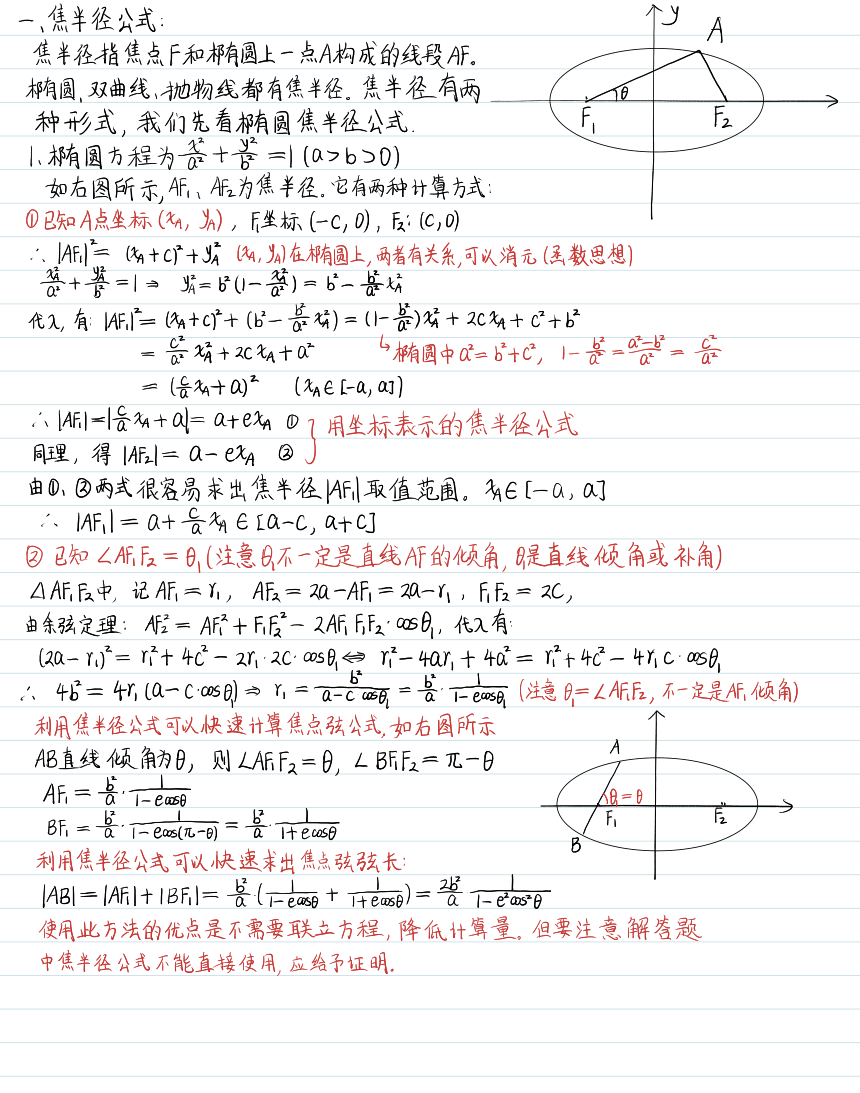 一、焦半径公式:
焦半径指焦点F和椭圆上一点A构成的线段AF。
椭圆、双曲线、抛物线都有焦半径。焦半径有两
种形式,我们先看椭圆焦半径公式.
y
A
θ
F₁
F₂
1、椭圆方程为 x²/a² + y²/b² = 1 (a>b>0)
如右图所示,AF₁、AF₂为焦半径。它有两种计算方式:
①已知A点坐标(x_A, y_A),F₁坐标(-c,0),F₂:(c,0)
∴ |AF₁|² = (x_A+c)²+y_A² (x_A, y_A)在椭圆上,两者有关系,可以消元(函数思想)
x_A²/a² + y_A²/b² = 1 ⇒ y_A² = b²(1 - x_A²/a²) = b² - b²/a² x_A²
代入,有: |AF₁|² = (x_A+c)² + (b² - b²/a² x_A²) = (1 - b²/a²)x_A² + 2cx_A + c² + b²
= c²/a² x_A² + 2cx_A + a² ↳椭圆中a²=b²+c², 1 - b²/a² = a²-b²/a² = c²/a²
= (c/a x_A + a)² (x_A∈[-a, a])
∴ |AF₁| = |c/a x_A + a| = a+ex_A ① } 用坐标表示的焦半径公式
同理,得 |AF₂| = a - ex_A ②
由①、②两式很容易求出焦半径|AF₁|取值范围。x_A∈[-a, a]
∴ |AF₁| = a + c/a x_A ∈ [a-c, a+c]
② 已知∠AF₁F₂=θ₁(注意θ₁不一定是直线AF的倾角,θ₁是直线倾角或补角)
△AF₁F₂中, 记AF₁=r₁, AF₂=2a-AF₁=2a-r₁, F₁F₂=2c,
由余弦定理: AF₂² = AF₁² + F₁F₂² - 2AF₁ F₁F₂·cosθ₁, 代入有:
(2a-r₁)² = r₁² + 4c² - 2r₁·2c·cosθ₁ ⇔ r₁² - 4ar₁ + 4a² = r₁² + 4c² - 4r₁c·cosθ₁
∴ 4b² = 4r₁(a-c·cosθ₁) ⇒ r₁ = b²/(a-c cosθ₁) = b²/a · 1/(1-ecosθ₁) (注意θ₁=∠AF₁F₂, 不一定是AF₁倾角)
利用焦半径公式可以快速计算焦点弦公式,如右图所示
AB直线倾角为θ, 则∠AF₁F₂=θ, ∠BF₁F₂=π-θ
AF₁ = b²/a · 1/(1-ecosθ)
BF₁ = b²/a · 1/(1-ecos(π-θ)) = b²/a · 1/(1+ecosθ)
A
θ₁=θ
F₁
F₂
B
利用焦半径公式可以快速求出焦点弦弦长:
|AB| = |AF₁| + |BF₁| = b²/a · (1/(1-ecosθ) + 1/(1+ecosθ)) = 2b²/a · 1/(1-e²cos²θ)
使用此方法的优点是不需要联立方程,降低计算量。但要注意解答题
中焦半径公式不能直接使用,应给予证明.